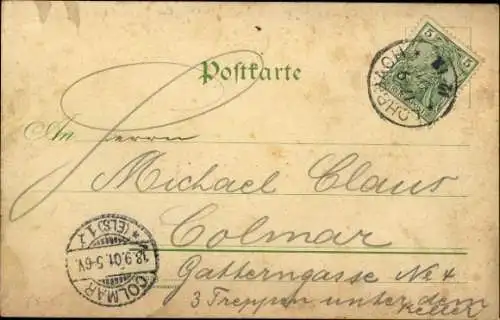 5 5
Postkarte
An Herrn
Michael Claus
Colmar
Gatterngasse No 4
3 Treppen unter dem
Keller
COLMAR * (ELS) 1
18.9.01. 5-6V.